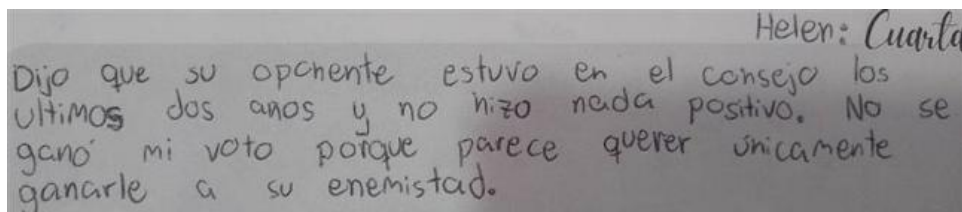 Helen: Cuarta
Dijo que su oponente estuvo en el consejo los
ultimos dos anos y no hizo nada positivo. No se
ganó mi voto porque parece querer únicamente
ganarle a su enemistad.